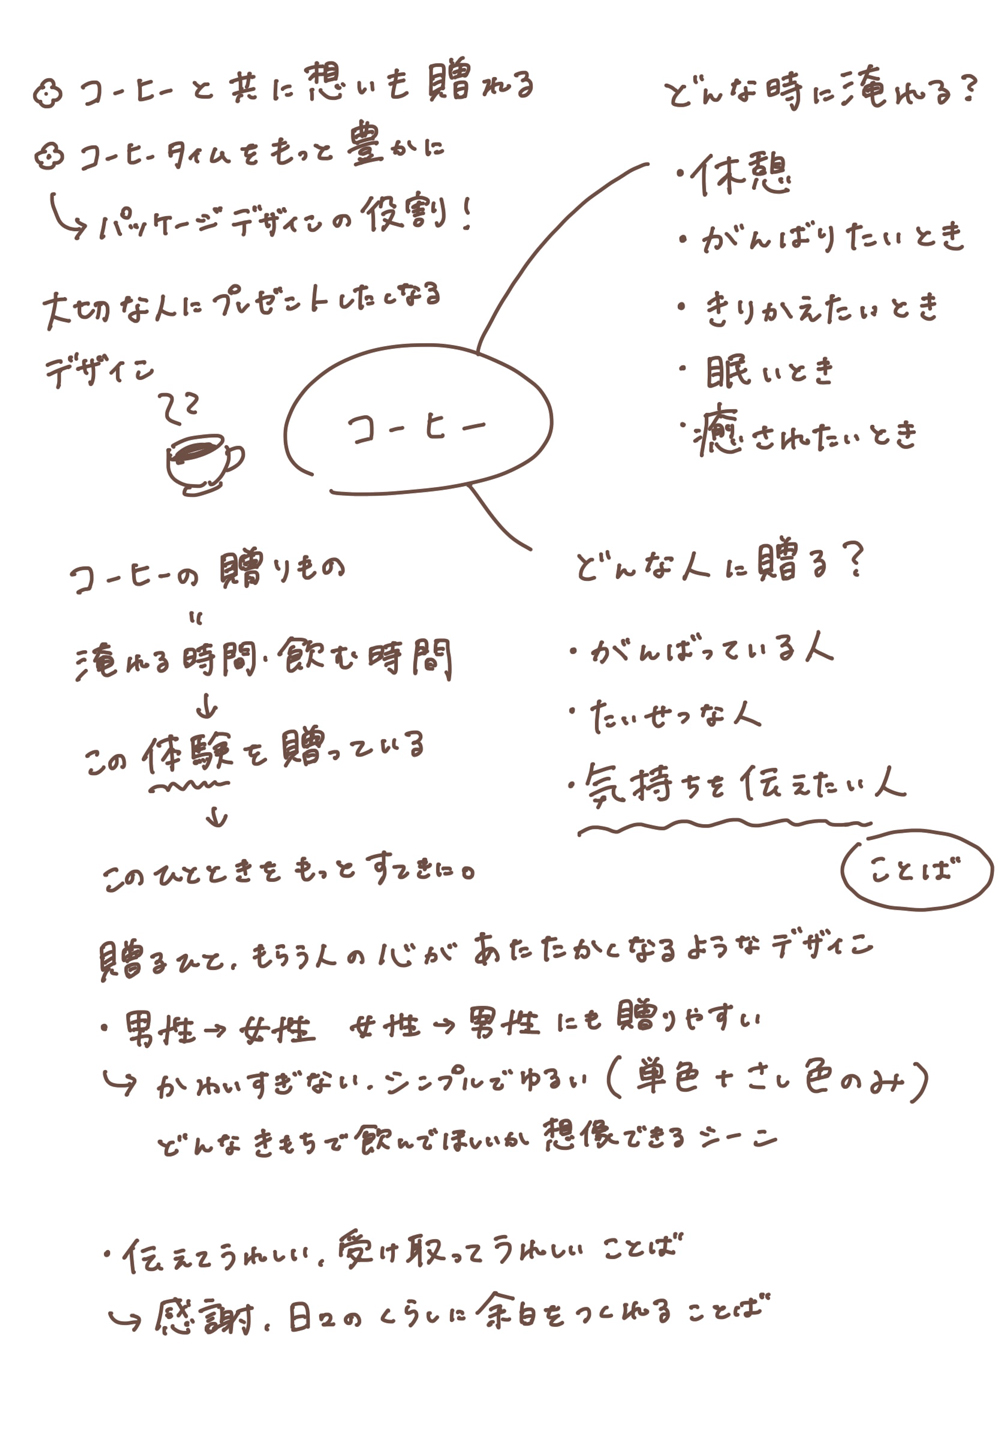 コーヒーと共に想いも贈れる
コーヒータイムをもっと豊かに
↳パッケージデザインの役割!
大切な人にプレゼントしたくなる
デザイン
コーヒー
どんな時に淹れる?
・休憩
・がんばりたいとき
・きりかえたいとき
・眠いとき
・癒されたいとき
どんな人に贈る?
・がんばっている人
・たいせつな人
・気持ちを伝えたい人
ことば
コーヒーの贈りもの
〃
淹れる時間・飲む時間
↓
この体験を贈っている
↓
このひとときをもっとすてきに。
贈るひと、もらう人の心があたたかくなるようなデザイン
・男性→女性 女性→男性にも贈りやすい
↳かわいすぎない、シンプルでゆるい(単色+さし色のみ)
どんなきもちで飲んでほしいか想像できるシーン
・伝えてうれしい、受け取ってうれしいことば
↳感謝、日々のくらしに余白をつくれることば